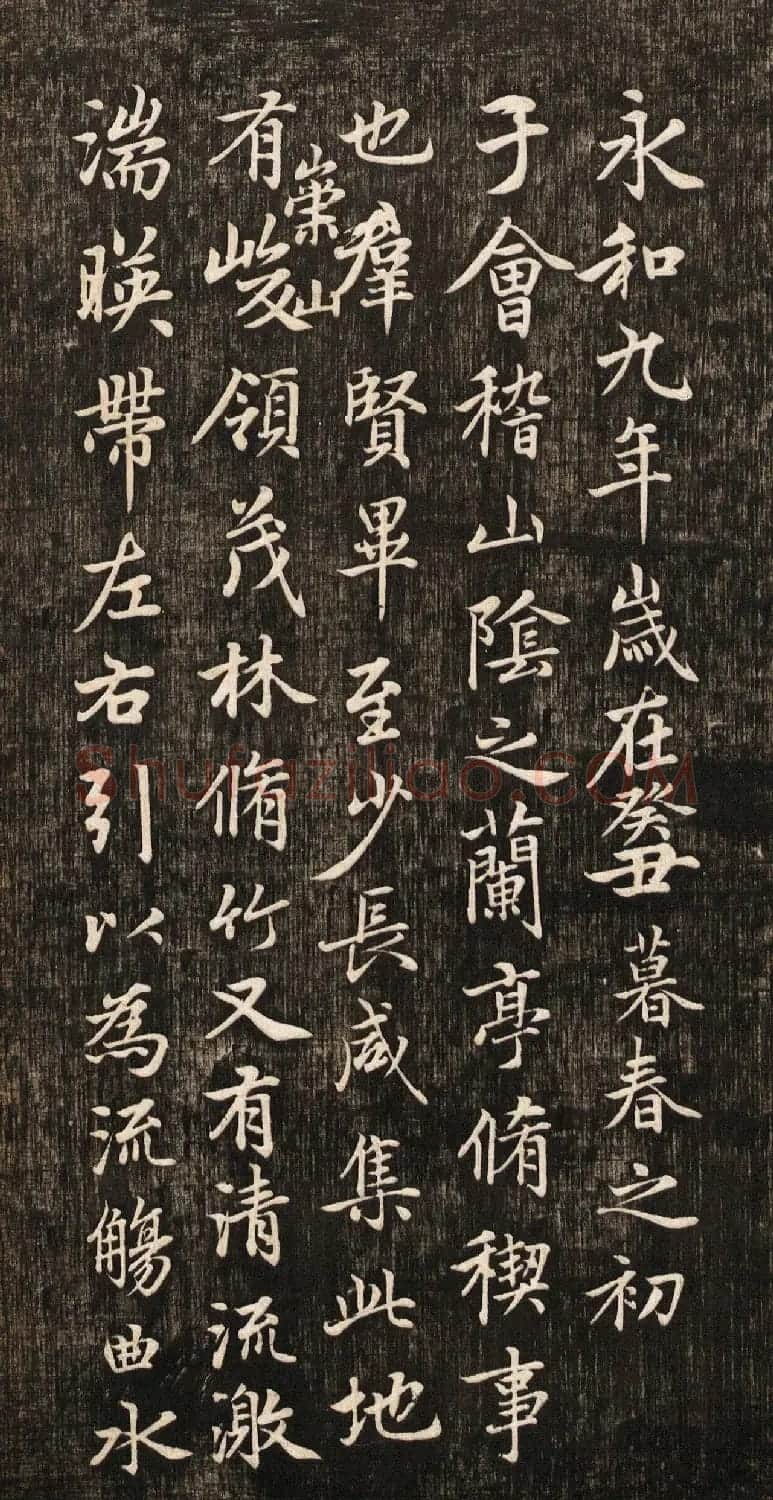 永和九年歲在癸丑暮春之初
于會稽山陰之蘭亭脩稧事
也羣賢畢至少長咸集此地
有崇山峻領茂林脩竹又有清流激
湍暎帶左右引以為流觴曲水
Shufaziliao.COM